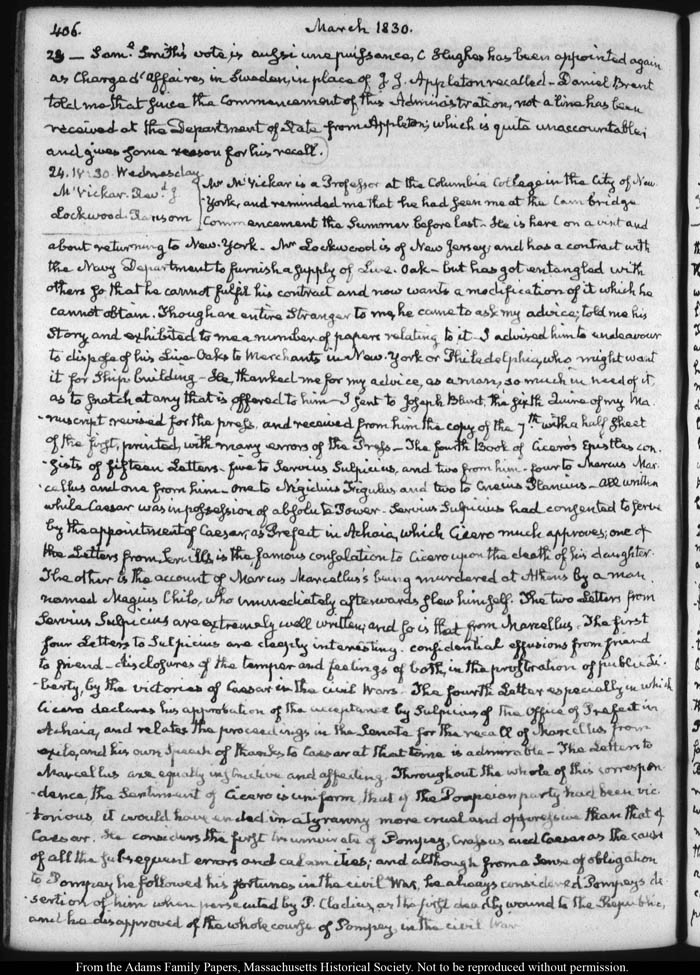 406. March 1830.
23 — Sam.l Smith's vote is aussi une puissance, C Hughes has been appointed again
as Chargé d'affaires in Sweden, in place of J. J. Appleton recalled — Daniel Brent
told me that since the Commencement of this Administration, not a line has been
received at the Department of State from Appleton; which is quite unaccountable;
and gives some reason for his recall.
24. IV:30. Wednesday
McVickar. Revd. J
Lockwood. Ransom
Mr McVickar is a Professor at the Columbia College in the City of New-
York, and reminded me that he had seen me at the Cambridge
Commencement the Summer before last. He is here on a visit and
about returning to New-York — Mr Lockwood is of New Jersey, and has a contract with
the Navy Department to furnish a supply of Live-Oak — but has got entangled with
others so that he cannot fulfil his contract and now wants a modification of it which he
cannot obtain. Though an entire Stranger to me, he came to ask my advice; told me his
Story, and exhibited to me a number of papers relating to it — I advised him to endeavour
to dispose of his Live-Oaks to Merchants in New-York or Philadelphia, who might want
it for Ship building — He, thanked me for my advice, as a man, so much in need of it,
as to snatch at any that is offered to him — I sent to Joseph Blunt, the sixth Quire of my Ma-
nuscript revised for the press, and received from him the copy of the 7th with a half sheet
of the first, printed, with many errors of the Press — The fourth Book of Cicero's Epistles con-
sists of fifteen Letters — five to Servius Sulpicius, and two from him — four to Marcus Mar-
cellus and one from him — one to Nigidius Figulus and two to Cneius Plancius — all written
while Caesar was in possession of absolute Power — Servius Sulpicius had consented to serve
by the appointment of Caesar, as Prefect in Achaia, which Cicero much approves; one of
the Letters from Servius is the famous consolation to Cicero upon the death of his daughter.
The other is the account of Marcus Marcellus's being murdered at Athens by a man
named Magius Chilo, who immediately afterwards slew himself. The two Letters from
Servius Sulpicius are extremely well written, and so is that from Marcellus. The first
four Letters to Sulpicius are deeply interesting. confidential effusions from friend
to friend — disclosures of the temper and feelings of both, in the prostration of public Li-
berty, by the victories of Caesar in the civil Wars. The fourth Letter especially in which
Cicero declares his approbation of the acceptance by Sulpicius of the Office of Prefect in
Achaia, and relates the proceedings in the Senate for the recall of Marcellus from
exile, and his own Speech of thanks to Caesar at that time is admirable — The Letters to
Marcellus are equally instructive and affecting. Throughout the whole of this correspon-
dence, the Sentiment of Cicero is uniform, that if the Pompeian party had been vic-
torious, it would have ended in a Tyranny more cruel and oppressive than that of
Caesar. He considers the first triumvirate of Pompey, Crassus and Caesar as the cause
of all the subsequent errors and calamities; and although from a sense of obligation
to Pompey he followed his fortunes in the civil War, he always considered Pompey's de-
sertion of him when persecuted by P. Clodius, as the first deadly wound to the Republic,
and he disapproved of the whole course of Pompey, in the civil War
From the Adams Family Papers, Massachusetts Historical Society. Not to be reproduced without permission.